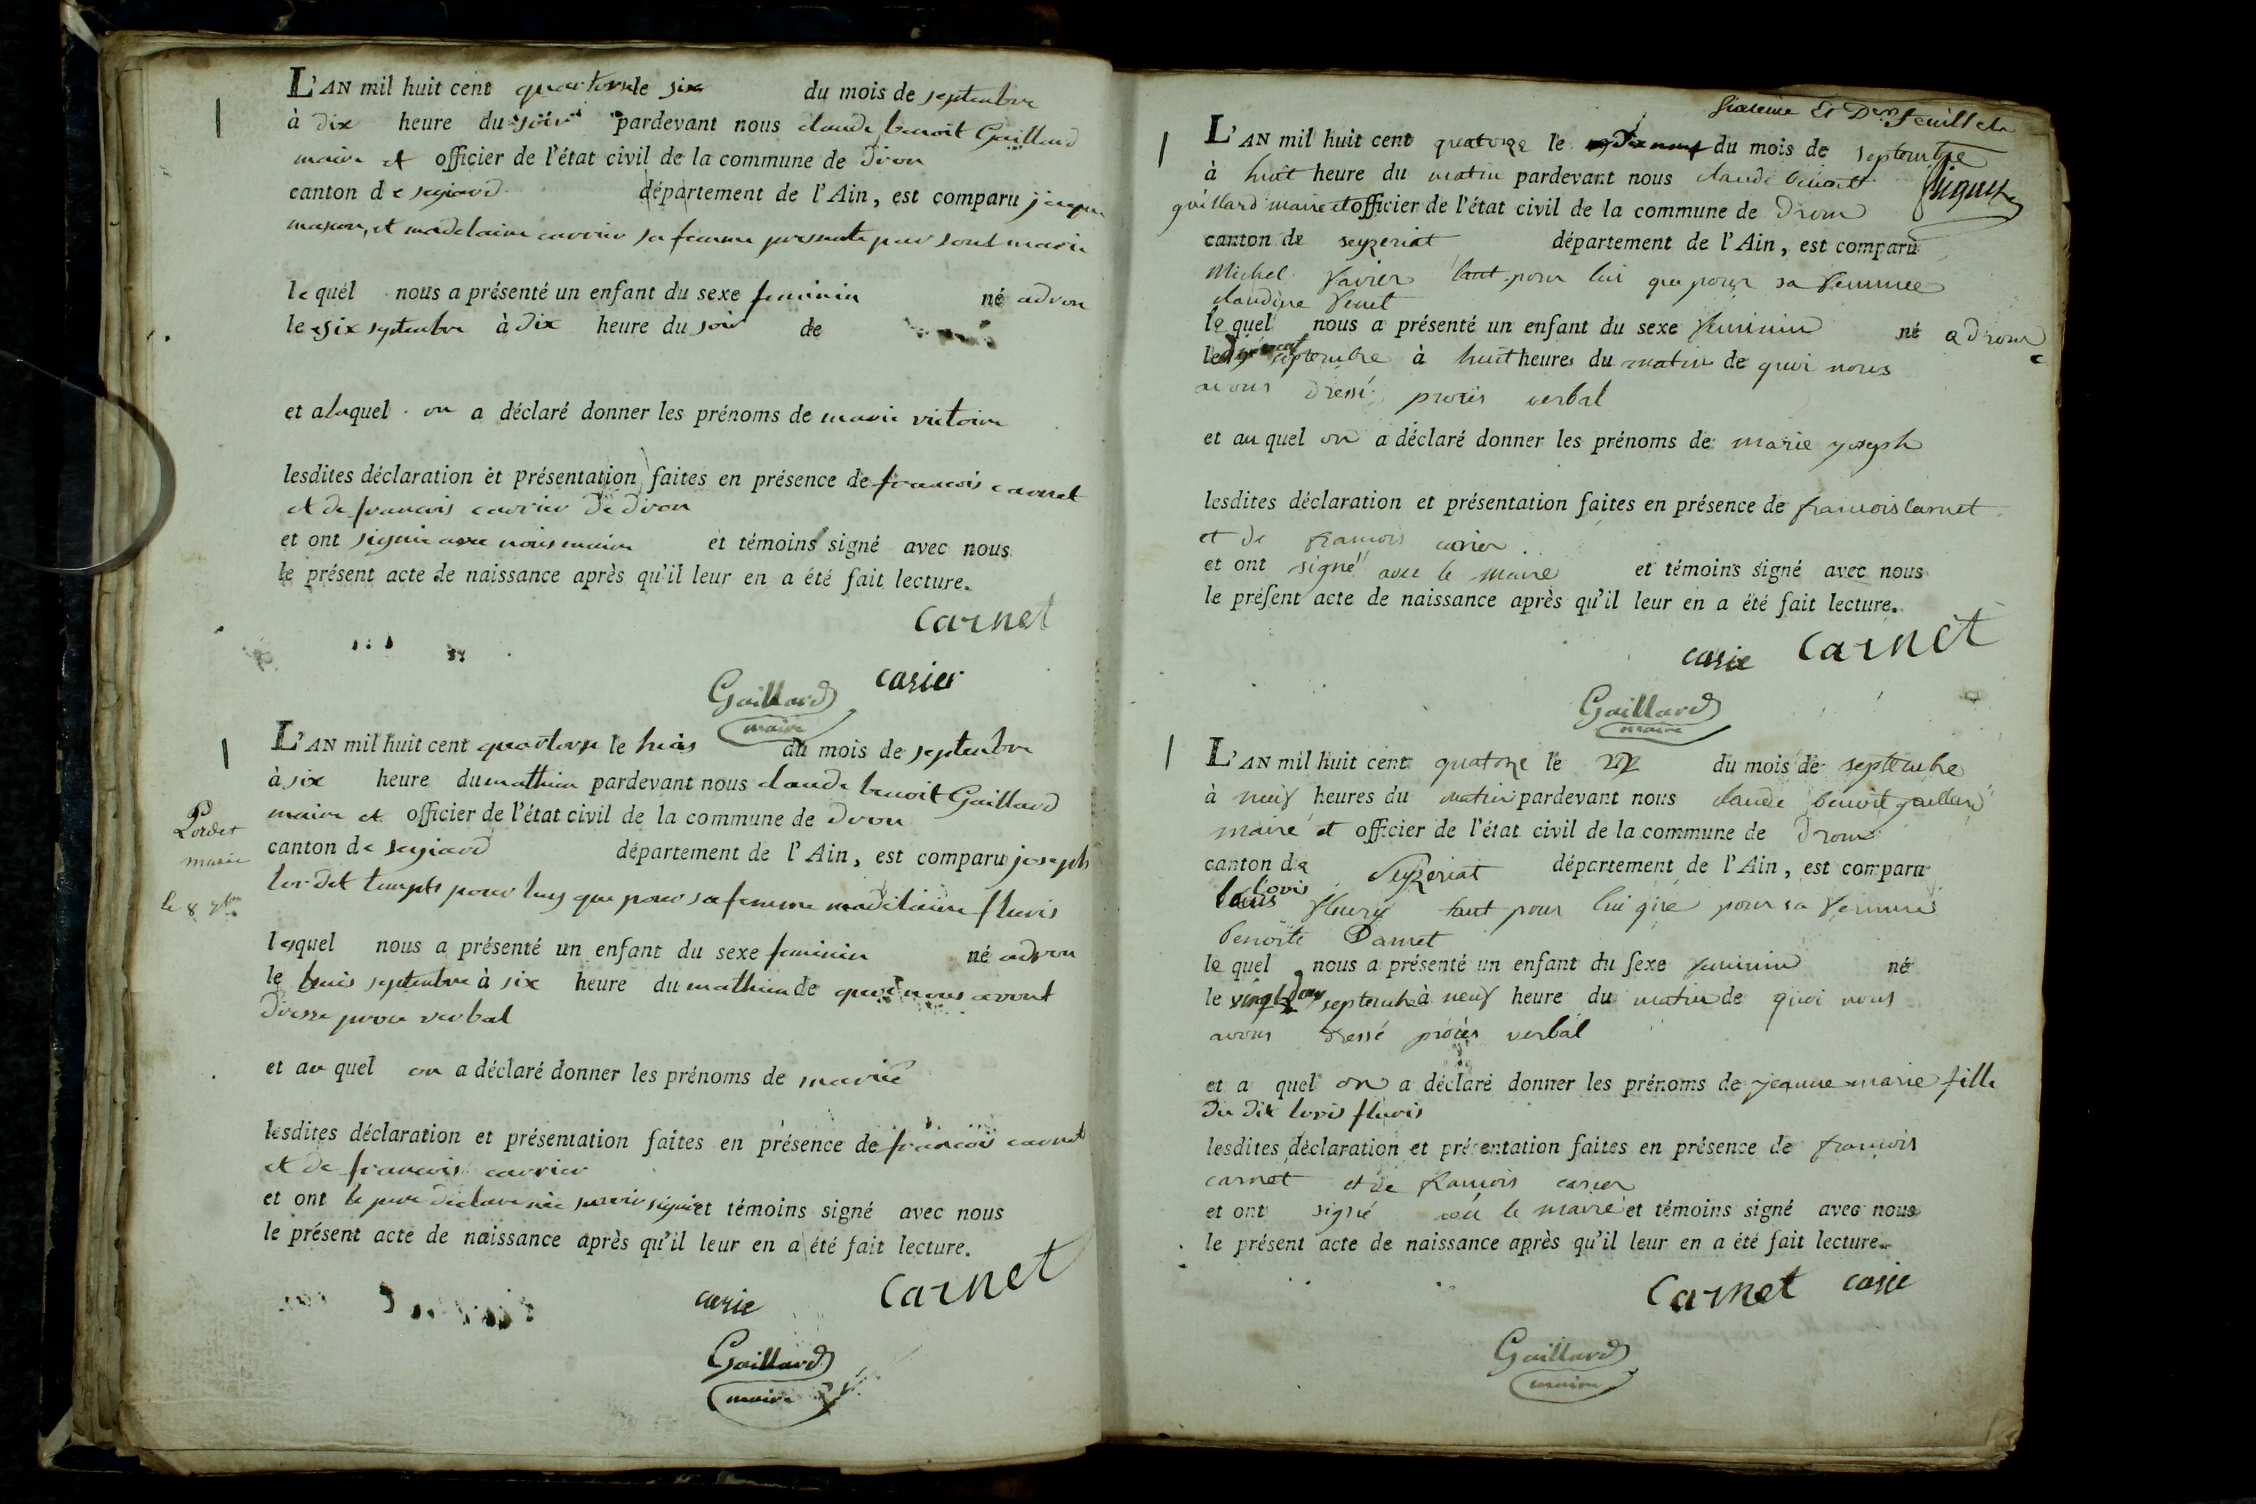 L'AN mil huit cent quatorze le six du mois de septembre
à dix heure du soir pardevant nous claude benoit Gaillard
maire et officier de l'état civil de la commune de dron
canton de département de l'Ain, est comparu
et madelaine carrier sa femme
lequel nous a présenté un enfant du sexe feminin né adron
le six septembre à dix heure du soir de
et aluquel on a déclaré donner les prénoms de marie victoire
lesdites déclaration et présentation faites en présence de francois carnet
et de francois carrier de dron
et ont signié avec nous maire et témoins signé avec nous
le présent acte de naissance après qu'il leur en a été fait lecture.
Carnet
Gaillard casier
maire
L'AN mil huit cent quatorze le huis du mois de septembre
à six heure du mathien pardevant nous claude benoit Gaillard
maire et officier de l'état civil de la commune de dron
Lordet
marie
le 8 7bre
canton de département de l'Ain, est comparu joseph
lordet pour luy que pour sa femme madelaine fluris
lesquel nous a présenté un enfant du sexe feminin né adron
le huis septembre à six heure du mathien de quoi nous avont
dresse proce verbal
et au quel on a déclaré donner les prénoms de marie
lesdites déclaration et présentation faites en présence de francois carnet
et de francois carrier
et ont le pere declare signié et témoins signé avec nous
le présent acte de naissance après qu'il leur en a été fait lecture.
casie Carnet
Gaillard
maire
Feuillet
L'AN mil huit cent quatorze le dix neuf du mois de septembre
à huit heure du matin pardevant nous claude benoit
guillard maire et officier de l'état civil de la commune de Drom
canton de seyzeriat département de l'Ain, est comparu
Michel tant pour lui que pour sa femme
claudine
le quel nous a présenté un enfant du sexe feminin né a drom
le septembre à huit heures du matin de quoi nous
avons dressé procès verbal
et au quel on a déclaré donner les prénoms de marie joseph
lesdites déclaration et présentation faites en présence de francois Carnet
et de francois carier
et ont signé avec le maire et témoins signé avec nous
le présent acte de naissance après qu'il leur en a été fait lecture.
casie Carnet
Gaillard
maire
L'AN mil huit cent quatorze le 22 du mois de septembre
à neuf heures du matin pardevant nous claude benoit gaillard
maire et officier de l'état civil de la commune de Drom
canton de Seyzeriat département de l'Ain, est comparu
lovis
fleury tant pour lui que pour sa femme
benoite Damet
le quel nous a présenté un enfant du sexe feminin né
le vingt deux septembre à neuf heure du matin de quoi nous
avons dressé procès verbal
et a quel on a déclaré donner les prénoms de jeanne marie fille
du dit lovis fluris
lesdites déclaration et présentation faites en présence de francois
carnet et de francois carier
et ont signé avec le maire et témoins signé avec nous
le présent acte de naissance après qu'il leur en a été fait lecture.
Carnet casie
Gaillard
maire